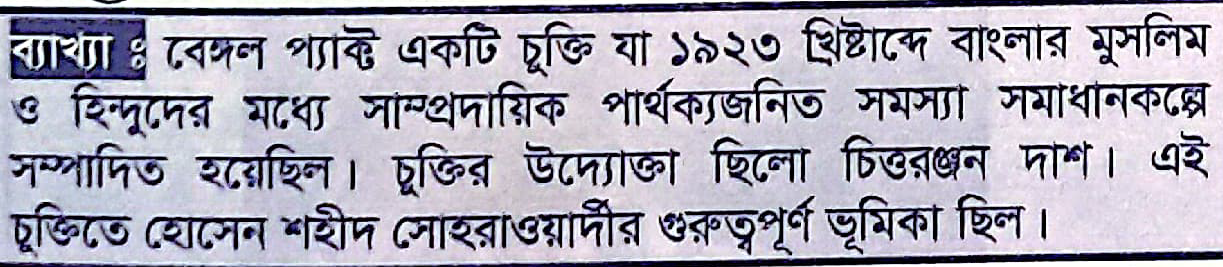 ব্যাখ্যা : বেঙ্গল প্যাক্ট একটি চুক্তি যা ১৯২৩ খ্রিষ্টাব্দে বাংলার মুসলিম
ও হিন্দুদের মধ্যে সাম্প্রদায়িক পার্থক্যজনিত সমস্যা সমাধানকল্পে
সম্পাদিত হয়েছিল। চুক্তির উদ্যোক্তা ছিলো চিত্তরঞ্জন দাশ। এই
চুক্তিতে হোসেন শহীদ সোহরাওয়ার্দীর গুরুত্বপূর্ণ ভূমিকা ছিল।